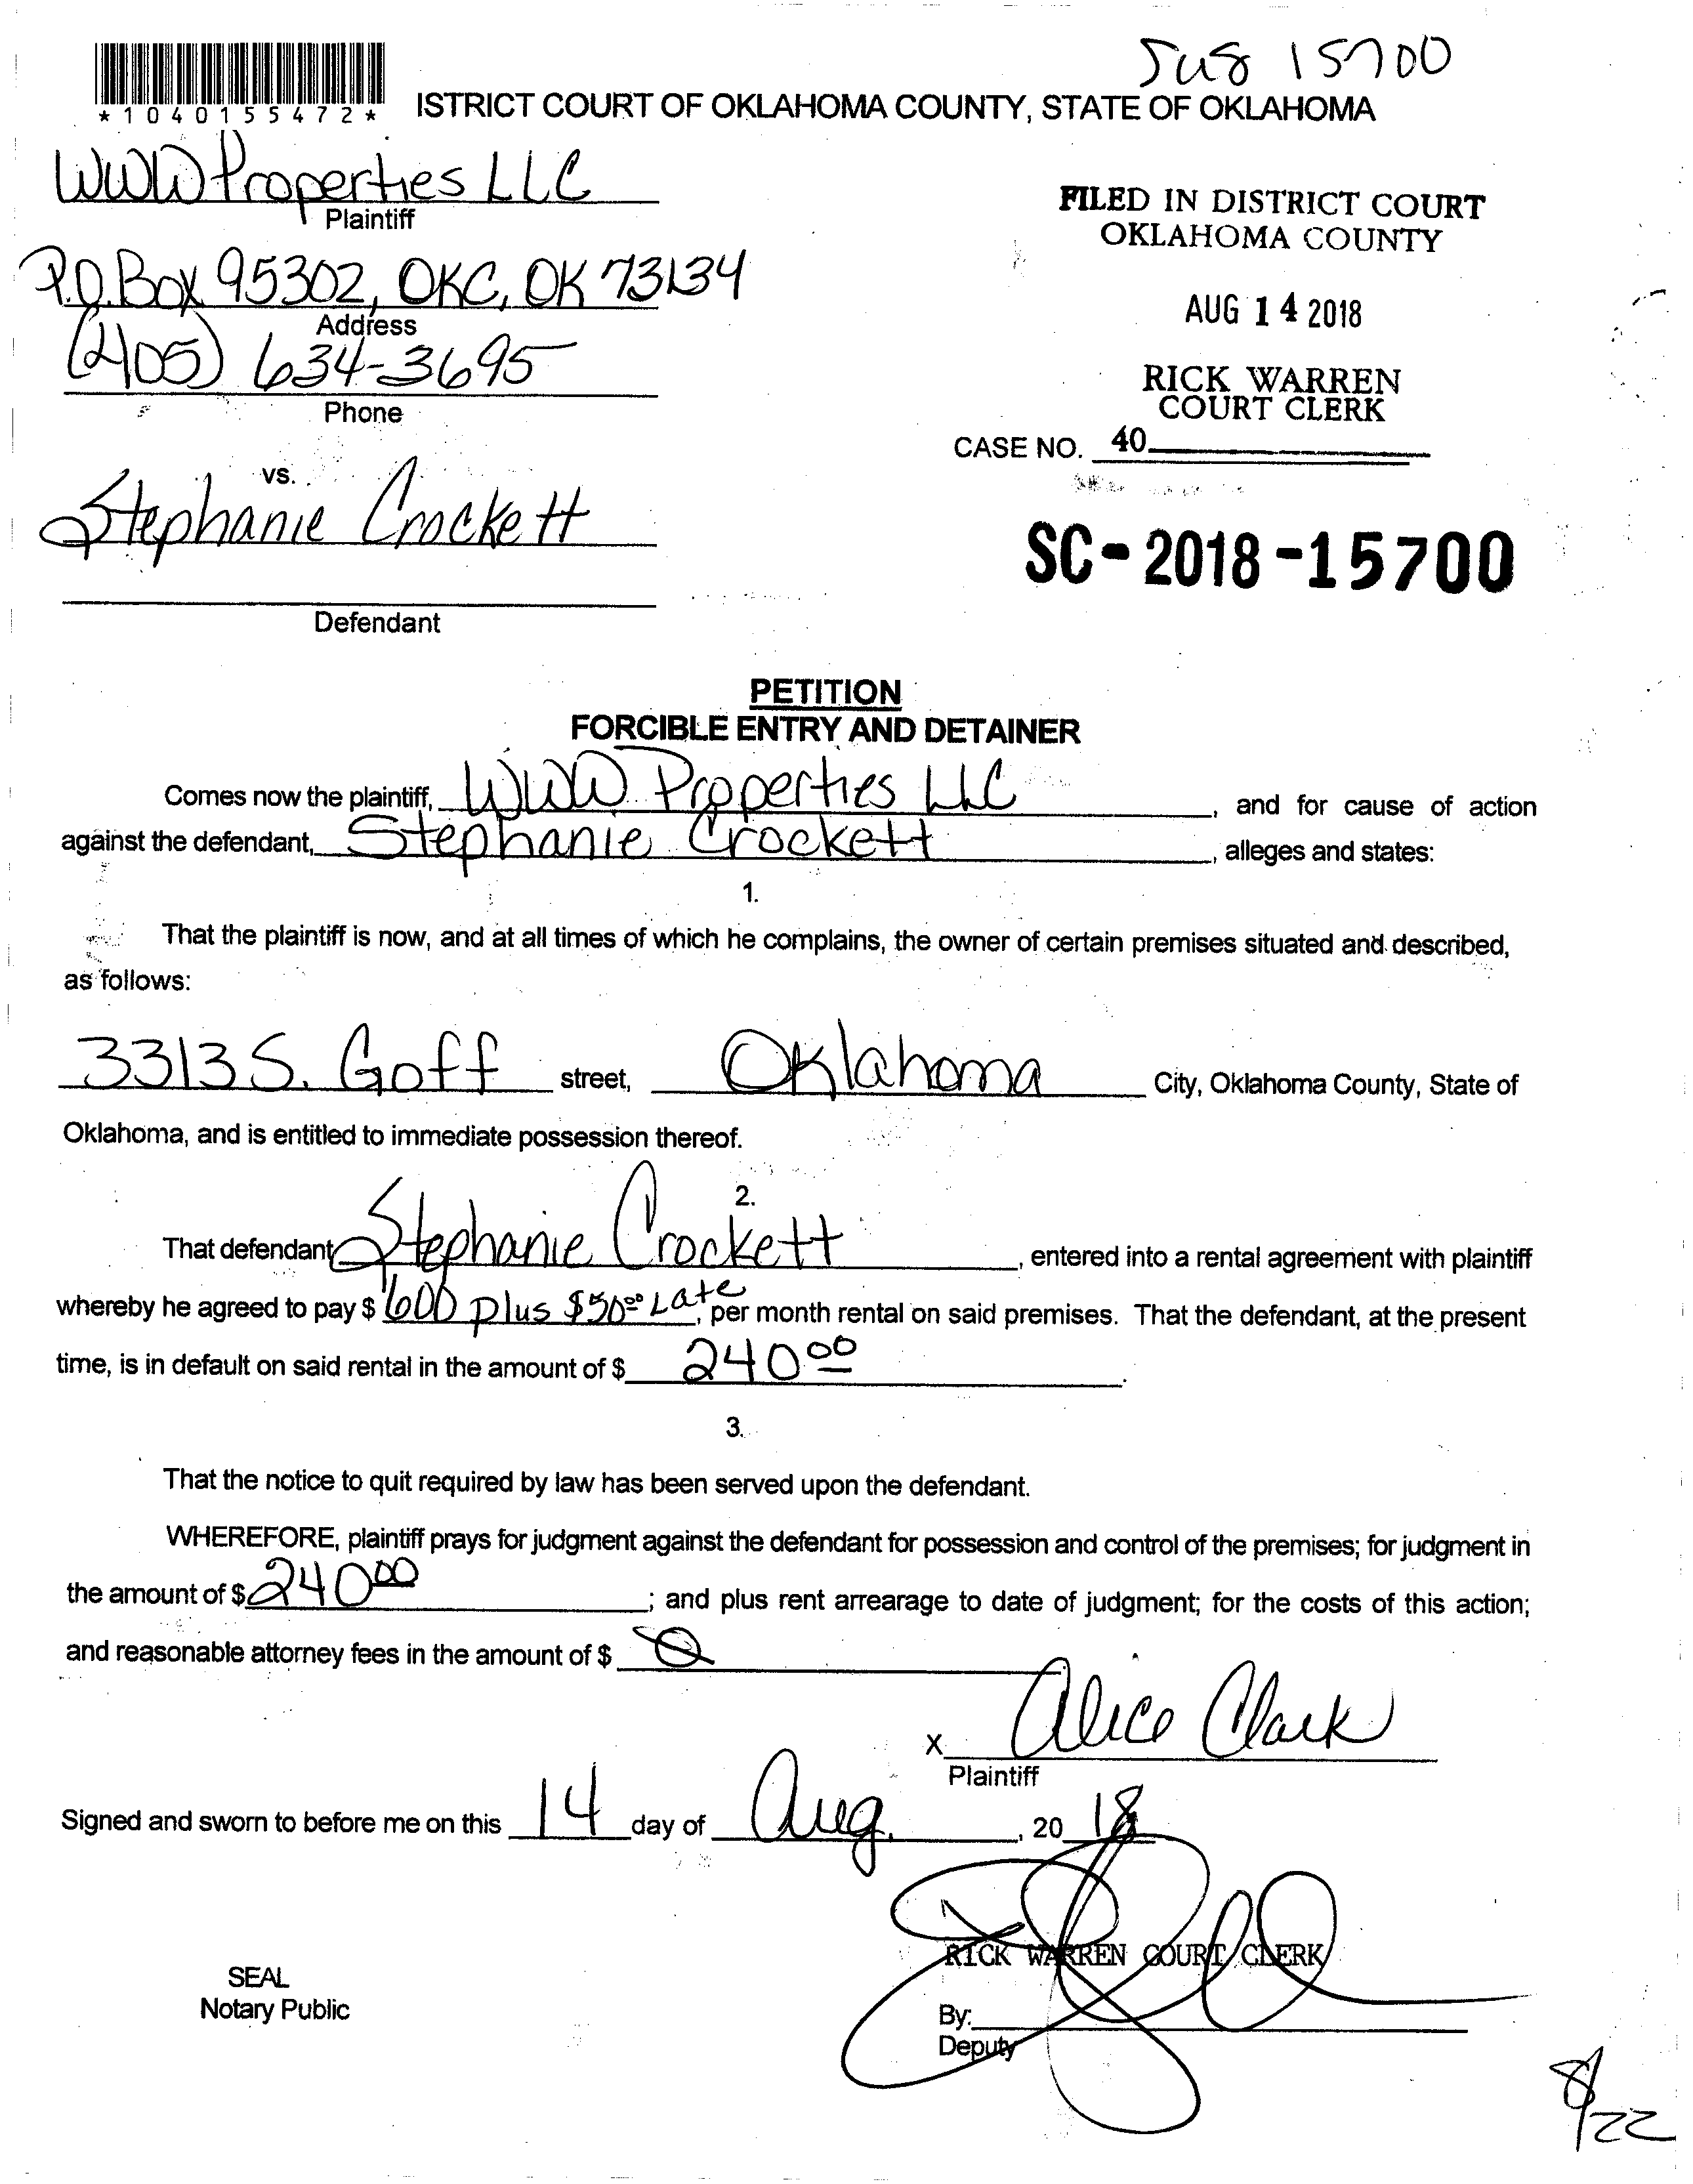 SC18 15700
*1040155472*
ISTRICT COURT OF OKLAHOMA COUNTY, STATE OF OKLAHOMA
WWW Properties LLC
Plaintiff
P.O. Box 95302, OKC, OK 73134
Address
(405) 634-3695
Phone
FILED IN DISTRICT COURT
OKLAHOMA COUNTY
AUG 14 2018
RICK WARREN
COURT CLERK
CASE NO. 40
vs.
Stephanie Crockett
SC-2018-15700
Defendant
PETITION
FORCIBLE ENTRY AND DETAINER
Comes now the plaintiff, WWW Properties LLC, and for cause of action
against the defendant, Stephanie Crockett, alleges and states:
1.
That the plaintiff is now, and at all times of which he complains, the owner of certain premises situated and described,
as follows:
3313 S. Goff street, Oklahoma City, Oklahoma County, State of
Oklahoma, and is entitled to immediate possession thereof.
2.
That defendant Stephanie Crockett, entered into a rental agreement with plaintiff
whereby he agreed to pay $ 600 plus $50.00 Late, per month rental on said premises. That the defendant, at the present
time, is in default on said rental in the amount of $ 240.00.
3.
That the notice to quit required by law has been served upon the defendant.
WHEREFORE, plaintiff prays for judgment against the defendant for possession and control of the premises; for judgment in
the amount of $ 240.00; and plus rent arrearage to date of judgment; for the costs of this action;
and reasonable attorney fees in the amount of $ 0
X Alice Clark
Plaintiff
Signed and sworn to before me on this 14 day of Aug., 2018
RICK WARREN COURT CLERK
SEAL
Notary Public
By:
Deputy
8/22